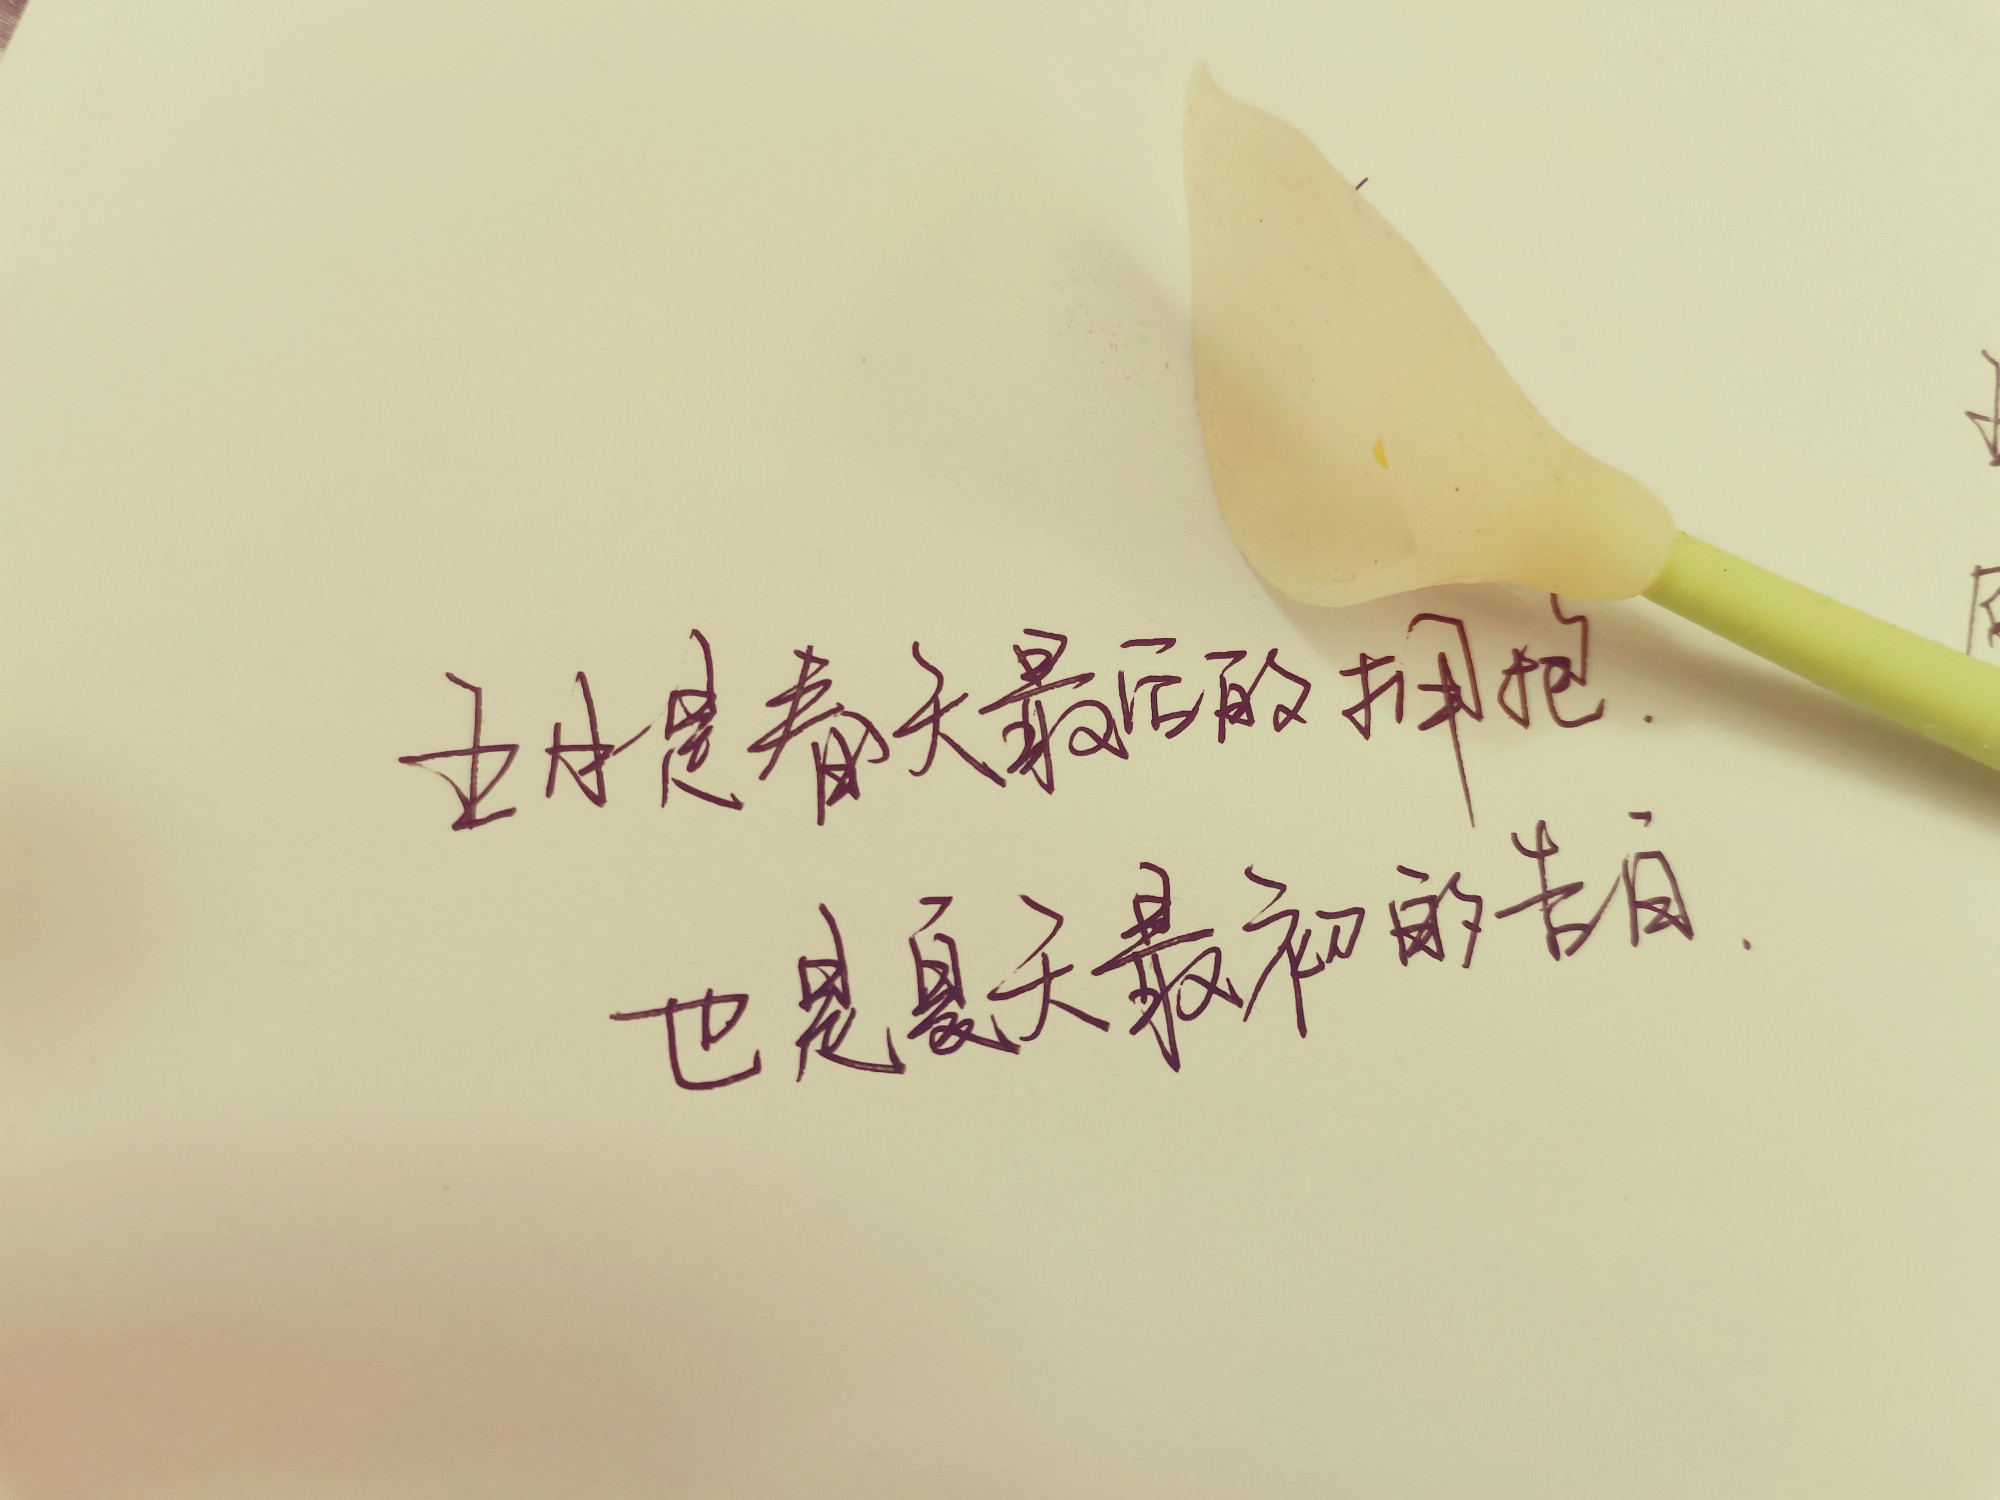 五月是春天最后的拥抱.
也是夏天最初的告白.